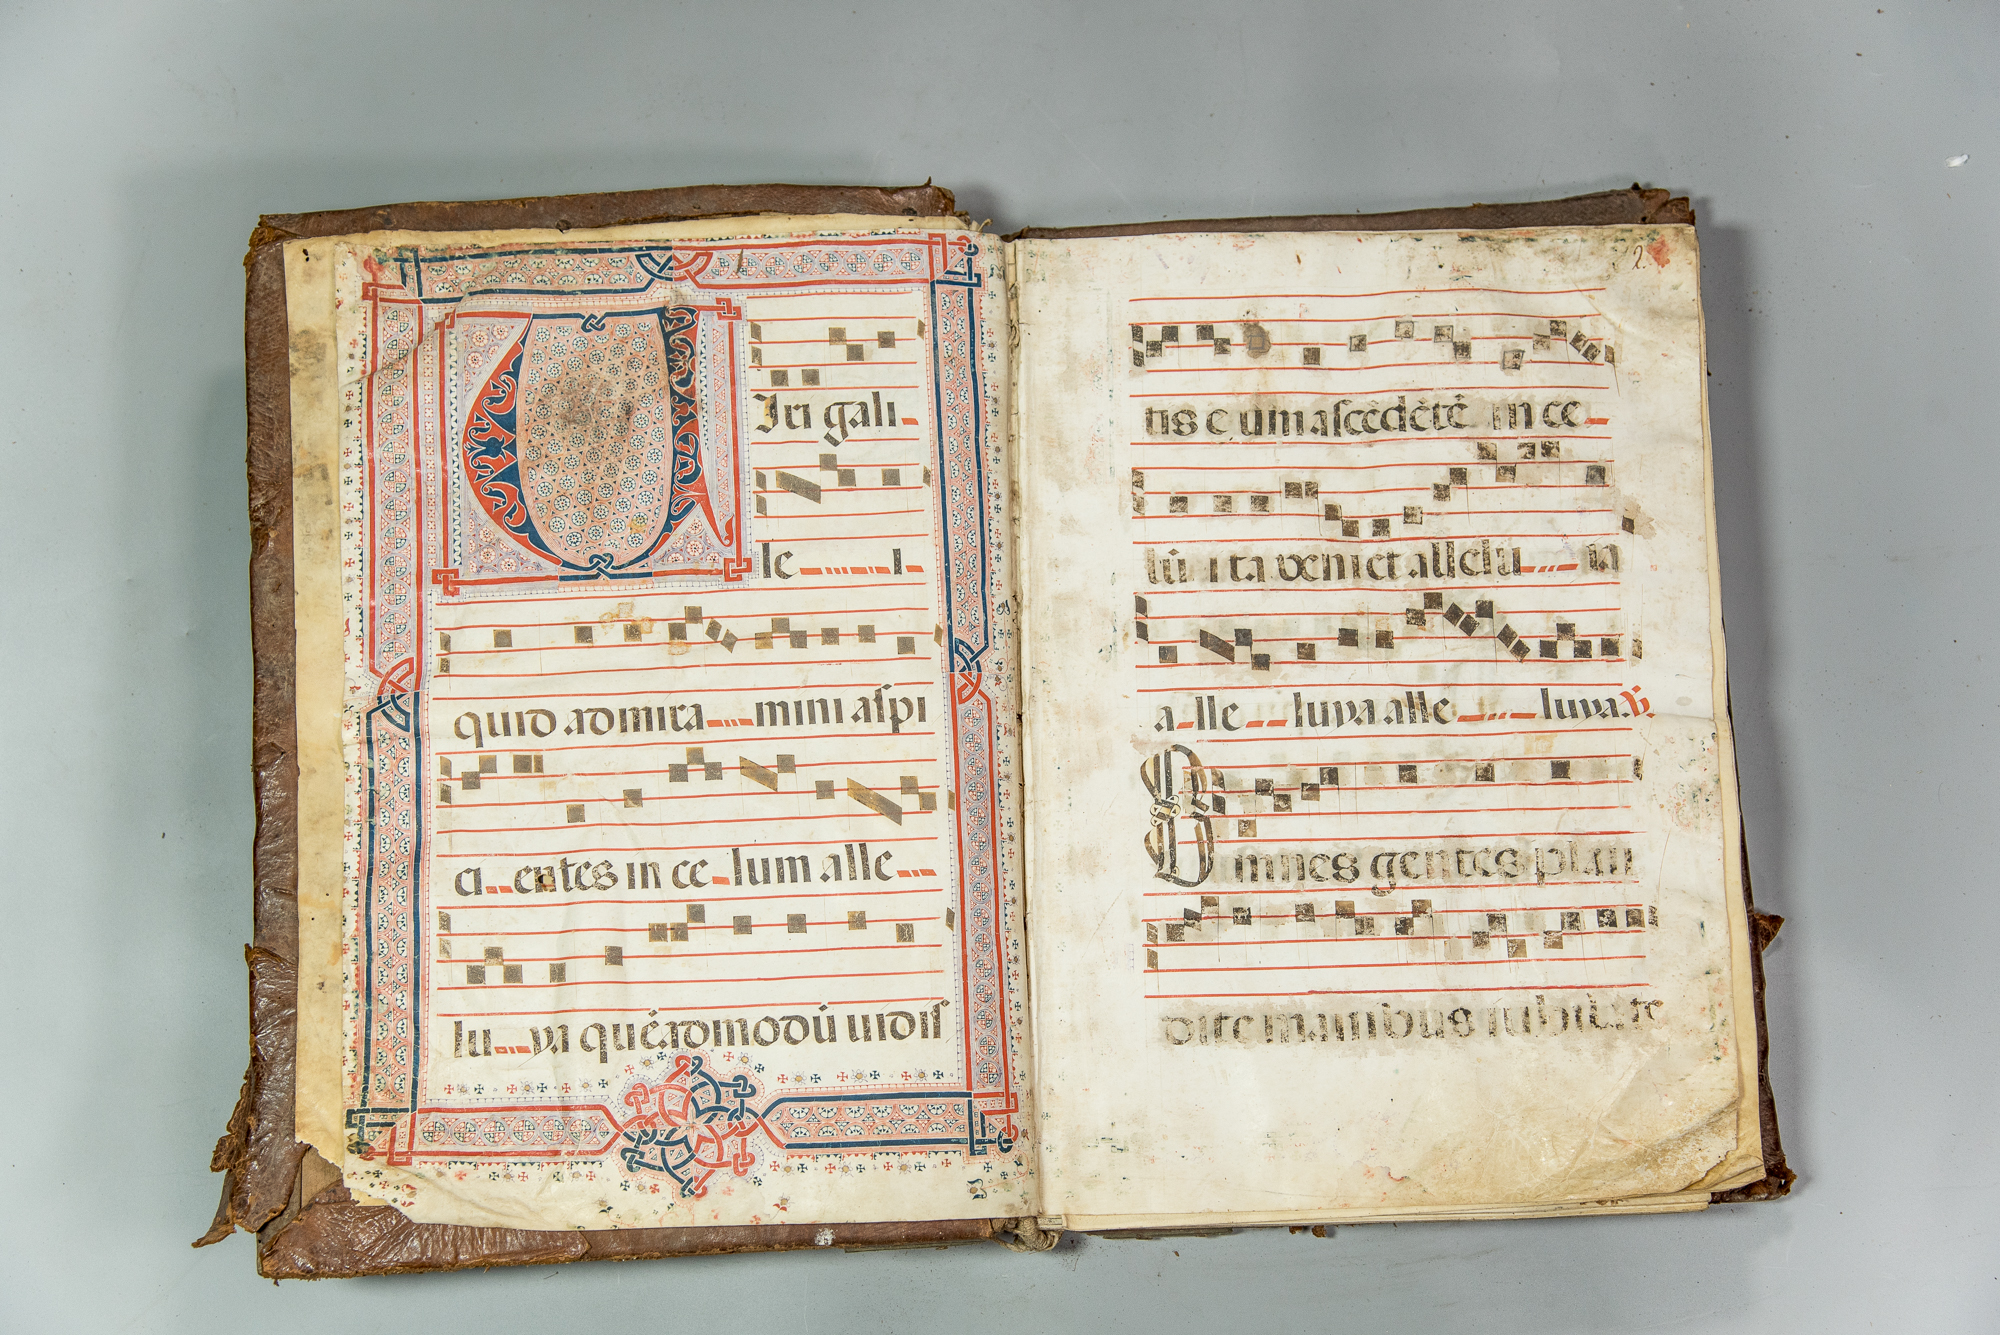 VIri gali
le l
quid admira mini aſpi
ci entes in ce lum alle
lu ya quéadmodũ uidiſ
2.
tis eum aſcẽdẽtẽ in ce
lũ ita veniet allelu ia
a lle luya alle luya. V.
Omnes gentes plau
dite manibus iubilate